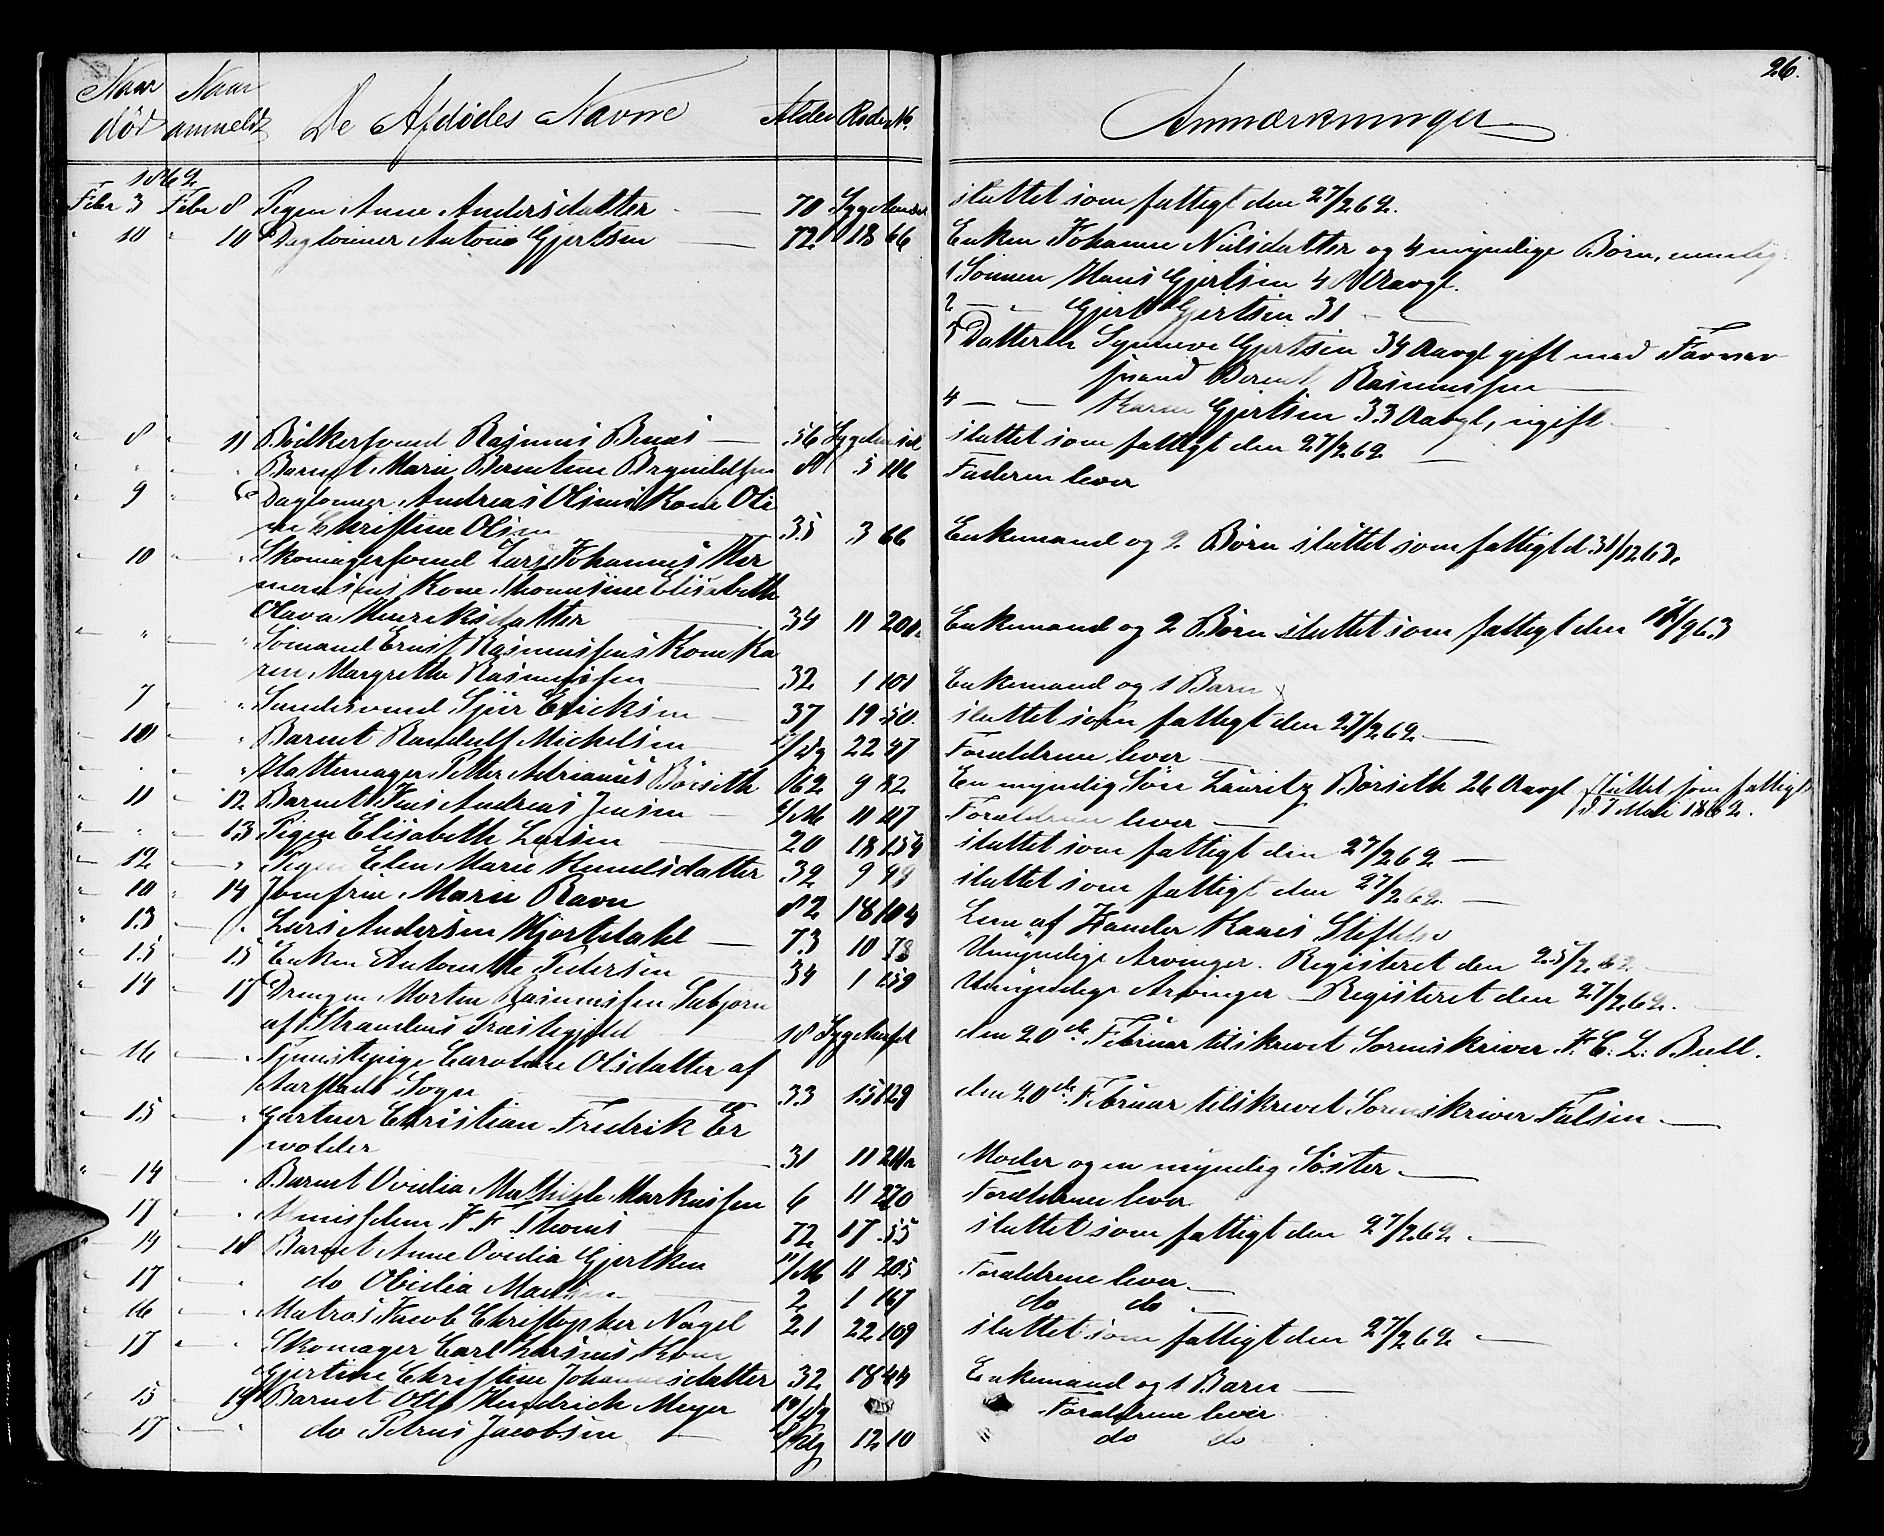 26.
Naar død Naar anmeldt De Afdødes Navne Alder Rode No. Anmærkninger
1862
Febr 3 Febr 8 Pigen Anne Andersdatter 70 Sygehuset sluttet som fattigt den 27/2 62.
" 10 " 10 Dagleier Antoni Gjertsen 72 18 66 Enken Johanne Nielsdatter og 4 myndige Børn, nemlig
1 Sønnen Hans Gjertsen 41 Aargl.
2 — " Gjert Gjertsen 31 — "
3 Datteren Synneve Gjertsen 34 Aargl gift med Farver
svend Bernt Rasmussen
4 — — Karen Gjertsen 33 Aargl, ugift
" 8 " 11 Bødkersvend Rasmus Benes 56 Sygehuset sluttet som fattigt den 27/2 62
" " " " Barnet Marie Berntine Brynildsen 5 116 Faderen lever
" 9 " " Dagleier Andreas Olsens Kone Oli
ne Christine Olsen 35 3 66 Enkemand og 2 Børn sluttet som fattigt d. 31/12 62.
" 10 " " Skomagersvend Lars Johannes
Kone Thomasine Elisabeth
Olava Henriksdatter 34 11 Enkemand og 2 Børn sluttet som fattigt den /9 63
" " " " Sømand Ernst Rasmussens Kone Ka
ren Margrethe Rasmussen 32 1 101 Enkemand og 1 Barn
" 7 " " Sjur Ericksen 37 19 50. sluttet som fattigt den 27/2 62
" 10 " " Barnet Randulf Michelsen 22 47 Forældrene lever
" " " " Hattemager Petter Adrianus Børseth 62 9 82 En myndig Søn Lauritz Børseth 26 Aargl sluttet som fattigt
Mai 1862.
" 11 " 12 Barnet Jens Andreas Jensen /M 11 Forældrene lever
" " " 13 Pigen Elisabeth Larsen 20 18 154 sluttet som fattigt den 27/2 62
" 12 " " Pigen Elen Marie Knudsdatter 32 9 sluttet som fattigt den 27/2 62.
" 10 " 14 Jomfrue Marie Ravn 82 18 104 Lem af Zander Kaaes Stiftelse
" 13 " " Lars Andersen Hjortdahl 73 10 78 Umyndige Arvinger. Registeret den 25/2 62
" 15 " 15 Enken Antonette Pedersen 34 1 159 Umyndige Arvinger Registeret den 27/2 62.
" 14 " 17 Drengen Morten Rasmussen Sæbjørn
af Strandens Præstegjeld 18 Sygehuset den 20de Februar tilskrevet Sorenskriver F. C. L. Bull.
" 16 " " Tjenistepige Caroline Olsdatter af
Aarstads Sogn 33 15 129 den 20de Februar tilskrevet Sorenskriver Falsen
" 15 " " Gartner Christian Fredrik Er
wolder 31 11 Moder og en myndig Søster
" 14 " " Barnet Ovidia Mathilde Markussen 6 11 270 Forældrene lever
" 17 " " F. F. Thoms 72 17 55 sluttet som fattigt den 27/2 62
" 14 " 18 Barnet Anne Ovidia Gjertsen 11/M 11 205 Forældrene lever
" 17 " " do Olidia 2 1 167 do do
" 16 " " Matros Jacob Christopher Nagel 21 22 109 sluttet som fattigt den 27/2 62
" 17 " " Skomager Carl Larsens Kone
Gjertine Christine Johannesdatter 32 18 44 Enkemand og 1 Barn
" 15 " 19 Barnet Otto Hendrich Meyer 14/dg Forældrene lever
" 17 " " do Petrus Jacobsen 12 10 do do